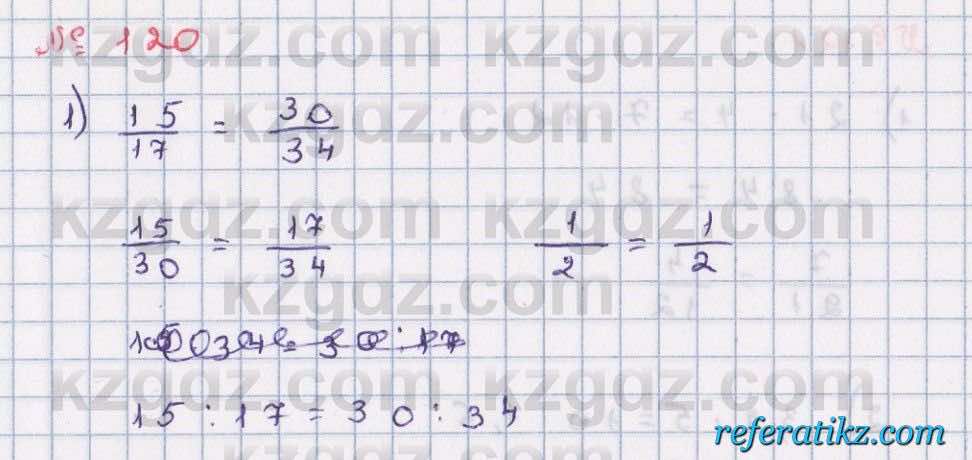 № 120
1) 15/17 = 30/34
15/30 = 17/34 1/2 = 1/2
15 : 17 = 30 : 34
kzgdz.com
referatikz.com